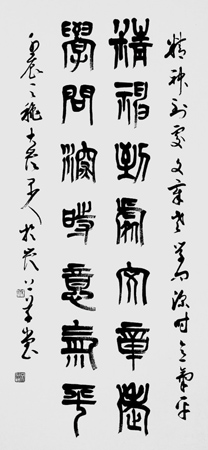 精神到處文章老學問深時意氣平
精神到處文章老
學問深時意氣平
壬辰之秋